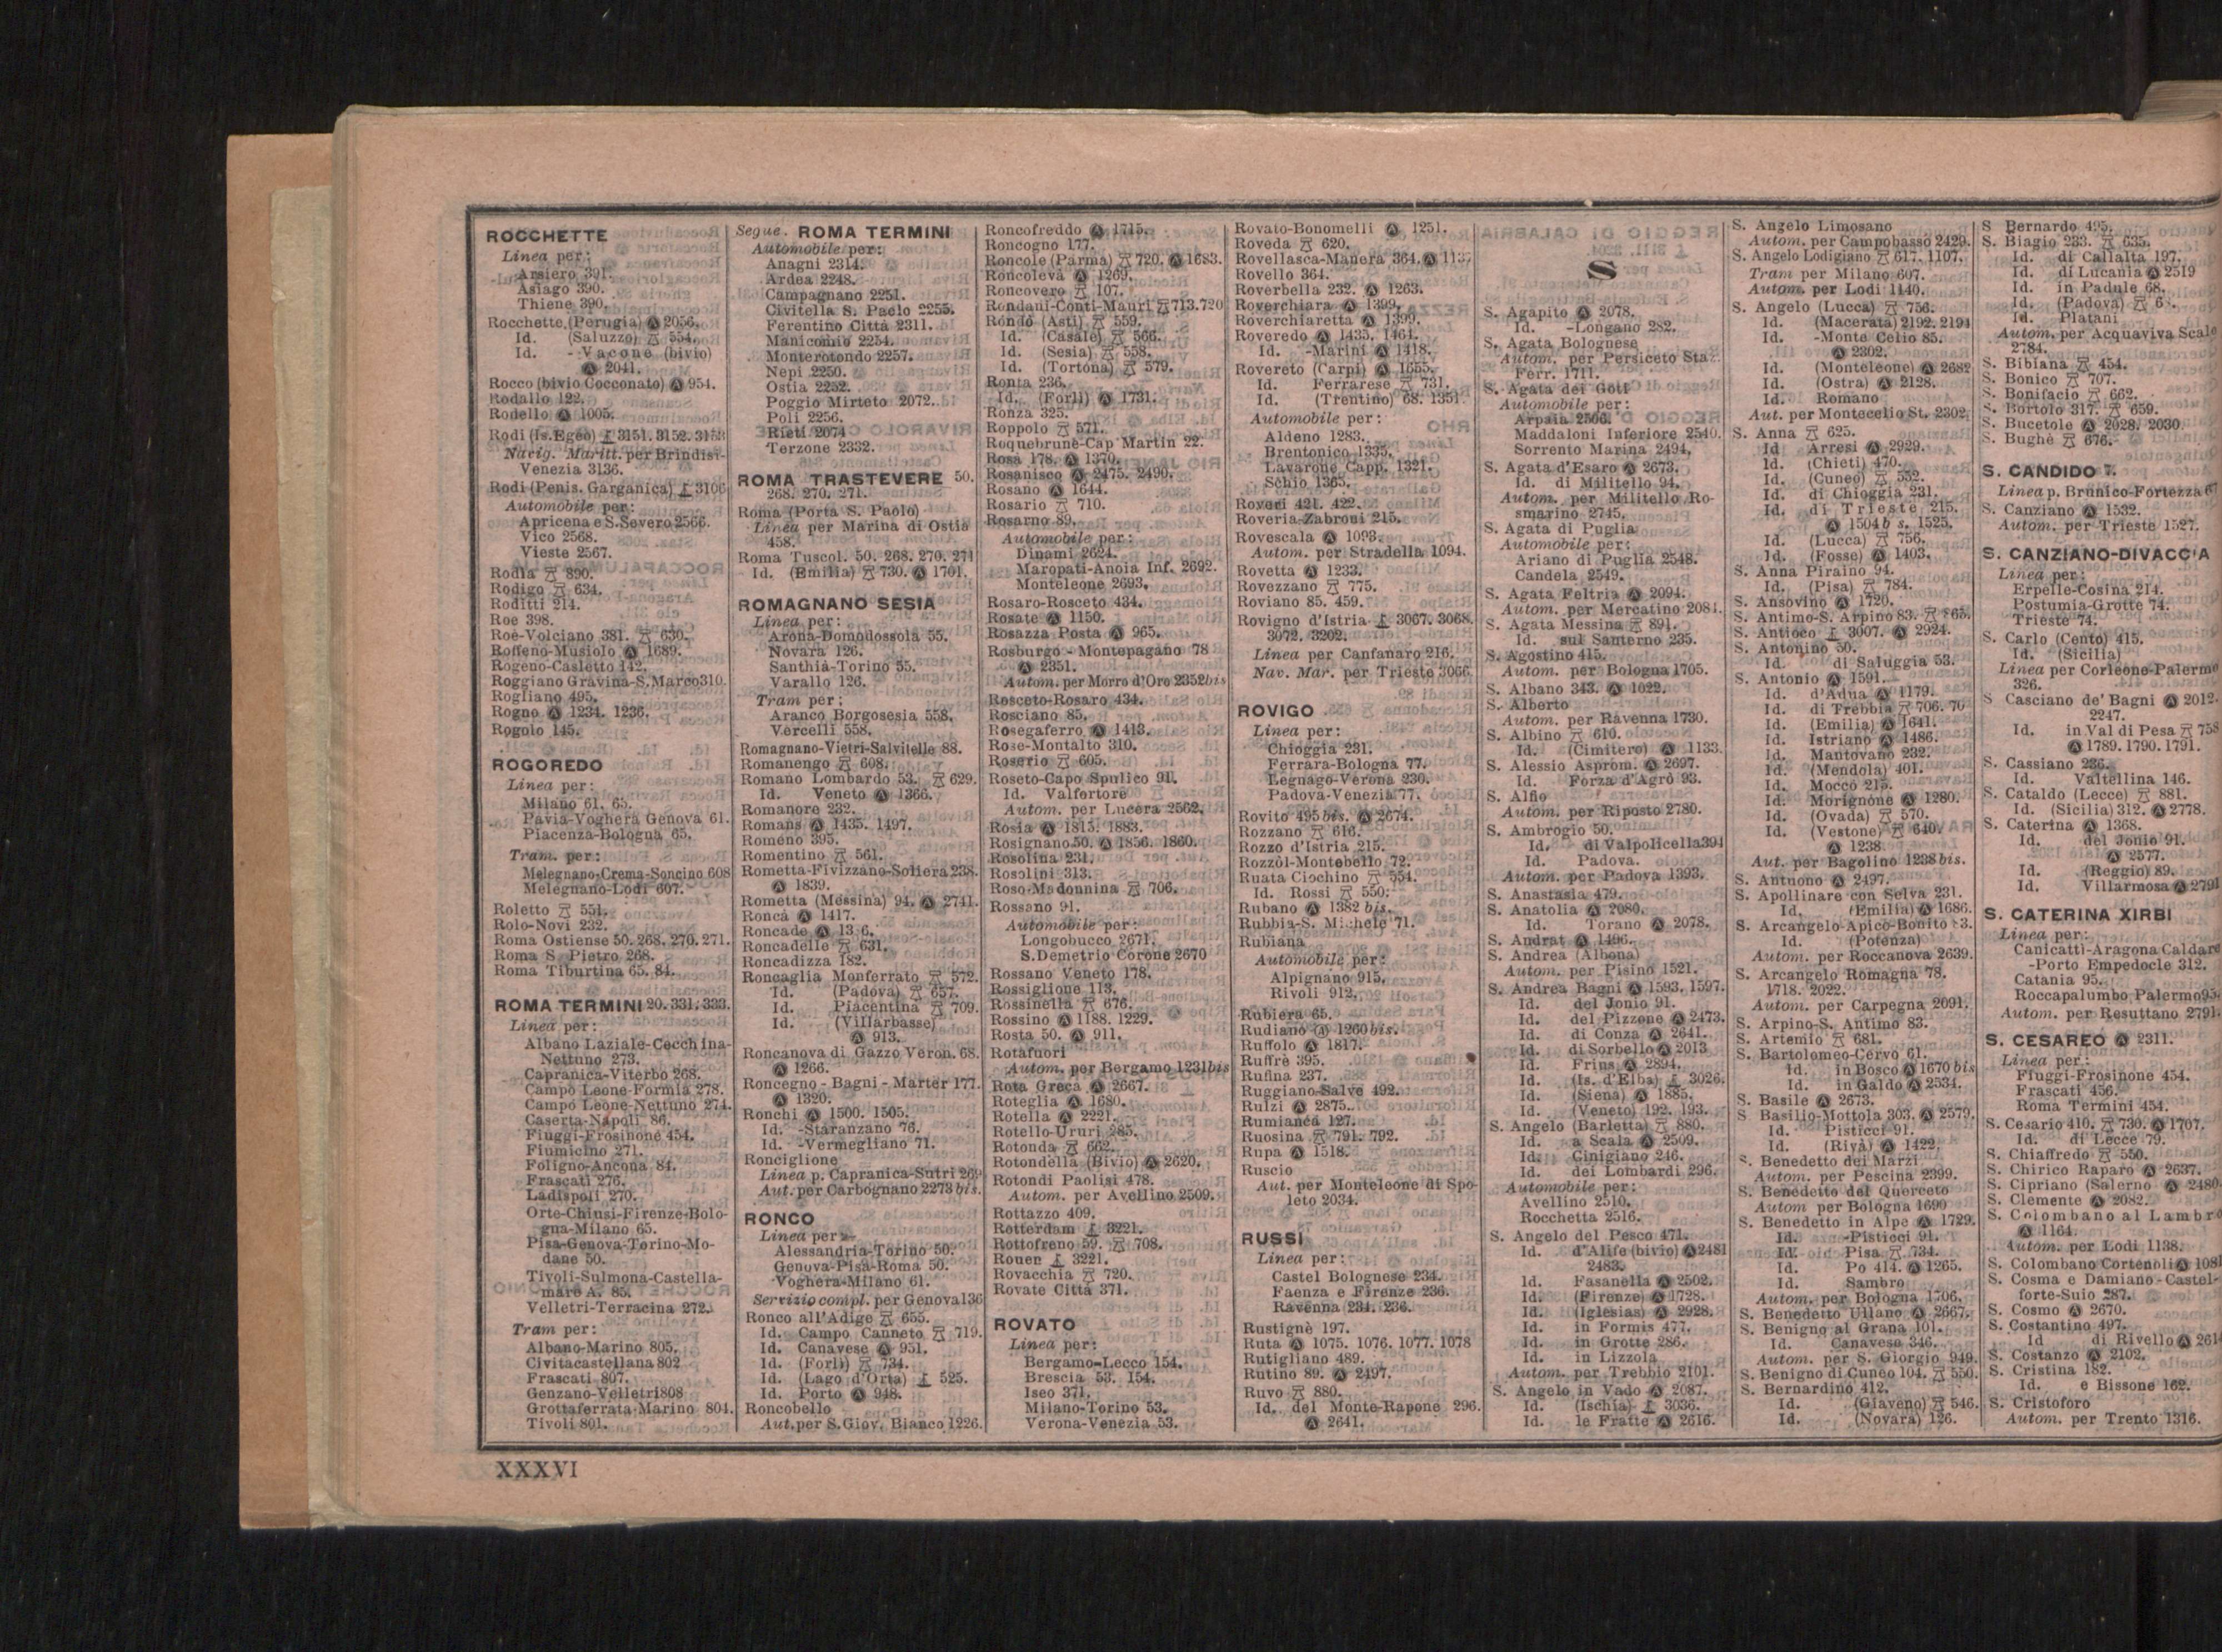 ROCCHETTE
Linea per:
Arsiero 391.
Asiago 390.
Thiene 390.
Rocchette (Perugia) Ⓐ 2056.
Id. (Saluzzo) 554.
Id. - Vacone (bivio)
Ⓐ 2041.
Rocco (bivio Cocconato) Ⓐ 954.
Rodallo 122.
Rodello Ⓐ 1005.
Rodi (Is. Egeo) 3151. 3152. 3153
Navig. Maritt. per Brindisi-
Venezia 3136.
Rodi (Penis. Garganica) 3106
Automobile per:
Apricena e S. Severo 2566.
Vico 2568.
Vieste 2567.
Rodia 890.
Rodigo 634.
Roditti 214.
Roe 398.
Roè-Volciano 381. 630.
Roffeno-Musiolo Ⓐ 1689.
Rogeno-Casletto 142.
Roggiano Gravina-S. Marco 310.
Rogliano 495.
Rogno Ⓐ 1234. 1236.
Rogolo 145.
ROGOREDO
Linea per:
Milano 61. 65.
Pavia-Voghera Genova 61.
Piacenza-Bologna 65.
Tram. per:
Melegnano-Crema-Soncino 608
Melegnano-Lodi 607.
Roletto 551.
Rolo-Novi 232.
Roma Ostiense 50. 268. 270. 271.
Roma S. Pietro 268.
Roma Tiburtina 65. 84.
ROMA TERMINI 20. 331. 333.
Linea per:
Albano Laziale-Cecchina-
Nettuno 273.
Capranica-Viterbo 268.
Campo Leone-Formia 278.
Campo Leone-Nettuno 274.
Caserta-Napoli 86.
Fiuggi-Frosinone 454.
Fiumicino 271.
Foligno-Ancona 84.
Frascati 276.
Ladispoli 270.
Orte-Chiusi-Firenze-Bolo-
gna-Milano 65.
Pisa-Genova-Torino-Mo-
dane 50.
Tivoli-Sulmona-Castella-
mare A. 85.
Velletri-Terracina 272.
Tram per:
Albano-Marino 805.
Civitacastellana 802
Frascati 807.
Genzano-Velletri 808
Grottaferrata-Marino 804.
Tivoli 801.
Segue. ROMA TERMINI
Automobile per:
Anagni 2314.
Ardea 2248.
Campagnano 2251.
Civitella S. Paolo 2255.
Ferentino Città 2311.
Manicomio 2254.
Monterotondo 2257.
Nepi 2250.
Ostia 2252.
Poggio Mirteto 2072.
Poli 2256.
Rieti 2074
Terzone 2332.
ROMA TRASTEVERE 50.
268. 270. 271.
Roma (Porta S. Paolo)
Linea per Marina di Ostia
458.
Roma Tuscol. 50. 268. 270. 271
Id. (Emilia) 730. Ⓐ 1701.
ROMAGNANO SESIA
Linea per:
Arona-Domodossola 55.
Novara 126.
Santhià-Torino 55.
Varallo 126.
Tram per:
Aranco Borgosesia 558.
Vercelli 558.
Romagnano-Vietri-Salvitelle 88.
Romanengo 608.
Romano Lombardo 53. 629.
Id. Veneto Ⓐ 1366.
Romanore 232.
Romans Ⓐ 1435. 1497.
Romeno 395.
Romentino 561.
Rometta-Fivizzano-Soliera 238.
Ⓐ 1839.
Rometta (Messina) 94. Ⓐ 2741.
Roncà Ⓐ 1417.
Roncade Ⓐ
Roncadelle 631.
Roncadizza 182.
Roncaglia Monferrato 572.
Id. (Padova) 657.
Id. Piacentina 709.
Id. (Villarbasse)
Ⓐ 913.
Roncanova di Gazzo Veron. 68.
Ⓐ 1266.
Roncegno - Bagni - Marter 177.
Ⓐ 1320.
Ronchi Ⓐ 1500. 1505.
Id. -Staranzano 76.
Id. -Vermegliano 71.
Ronciglione
Linea p. Capranica-Sutri 269
Aut. per Carbognano 2273 bis.
RONCO
Linea per
Alessandria-Torino 50.
Genova-Pisa-Roma 50.
Voghera-Milano 61.
Servizio compl. per Genova 136
Ronco all'Adige 655.
Id. Campo Canneto 719.
Id. Canavese Ⓐ 951.
Id. (Forlì) 734.
Id. (Lago d'Orta) 525.
Id. Porto Ⓐ 948.
Roncobello
Aut. per S. Giov. Bianco 1226.
Roncofreddo Ⓐ 1715.
Roncogno 177.
Roncole (Parma) 720. Ⓐ 1683.
Roncoleva Ⓐ 1269.
Roncovero 107.
Rondani-Conti-Mauri 713. 720
Rondò (Asti) 559.
Id. (Casale) 566.
Id. (Sesia) 558.
Id. (Tortona) 579.
Ronta 236.
Id. (Forlì) Ⓐ 1731.
Ronza 325.
Roppolo 571.
Roquebrune-Cap Martin 22.
Rosà 178. Ⓐ 1370.
Rosanisco Ⓐ 2475. 2490.
Rosano Ⓐ 1644.
Rosario 710.
Rosarno 89.
Automobile per:
Dinami 2624.
Maropati-Anoia Inf. 2692.
Monteleone 2693.
Rosaro-Rosceto 434.
Rosate Ⓐ 1150.
Rosazza Posta Ⓐ 965.
Rosburgo - Montepagano 78
Ⓐ 2351.
Autom. per Morro d'Oro 2352 bis
Rosceto-Rosaro 434.
Rosciano 85.
Rosegaferro Ⓐ 1413.
Rose-Montalto 310.
Roserio 605.
Roseto-Capo Spulico 91.
Id. Valfortore
Autom. per Lucera 2562.
Rosia Ⓐ 1813. 1883.
Rosignano 50. Ⓐ 1856. 1860.
Rosolina 231.
Rosolini 313.
Roso-Madonnina 706.
Rossano 91.
Automobile per:
Longobucco 2671.
S. Demetrio Corone 2670
Rossano Veneto 178.
Rossiglione 113.
Rossinella 676.
Rossino Ⓐ 1188. 1229.
Rosta 50. Ⓐ 911.
Rotafuori
Autom. per Bergamo 1231 bis
Rota Greca Ⓐ 2667.
Roteglia Ⓐ 1680.
Rotella Ⓐ 2221.
Rotello-Ururi 285.
Rotonda 662.
Rotondella (Bivio) Ⓐ 2620.
Rotondi Paolisi 478.
Autom. per Avellino 2509.
Rottazzo 409.
Rotterdam 3221.
Rottofreno 59. 708.
Rouen 3221.
Rovacchia 720.
Rovate Città 371.
ROVATO
Linea per:
Bergamo-Lecco 154.
Brescia 53. 154.
Iseo 371.
Milano-Torino 53.
Verona-Venezia 53.
Rovato-Bonomelli Ⓐ 1251.
Roveda 620.
Rovellasca-Manera 364. Ⓐ
Rovello 364.
Roverbella 232. Ⓐ 1263.
Roverchiara Ⓐ 1399.
Roverchiaretta Ⓐ 1399.
Roveredo Ⓐ 1435. 1464.
Id. -Marini Ⓐ 1418.
Rovereto (Carpi) Ⓐ 1655.
Id. Ferrarese 731.
Id. (Trentino) 68. 1351.
Automobile per:
Aldeno 1283.
Brentonico 1335.
Lavarone Capp. 1321.
Schio 1365.
Roveri 421. 422.
Roveria-Zabroni 215.
Rovescala Ⓐ 1093.
Autom. per Stradella 1094.
Rovetta Ⓐ 1233.
Rovezzano 775.
Roviano 85. 459.
Rovigno d'Istria 3067. 3068.
3072. 3202.
Linea per Canfanaro 216.
Nav. Mar. per Trieste 3066.
ROVIGO
Linea per:
Chioggia 231.
Ferrara-Bologna 77.
Legnago-Verona 230.
Padova-Venezia 77.
Rovito 495 bis. Ⓐ 2674.
Rozzano 616.
Rozzo d'Istria 215.
Rozzòl-Montebello 72.
Ruata Ciochino 554.
Id. Rossi 550.
Rubano Ⓐ 1382 bis.
Rubbia-S. Michele 71.
Rubiana
Automobile per:
Alpignano 915.
Rivoli 912.
Rubiera 65.
Rudiano Ⓐ 1260 bis.
Ruffolo Ⓐ 1817.
Ruffrè 395.
Rufina 237.
Ruggiano-Salve 492.
Rulzi Ⓐ 2875.
Rumianca 127.
Ruosina 791. 792.
Rupa Ⓐ 1518.
Ruscio
Aut. per Monteleone di Spo-
leto 2034.
RUSSI
Linea per:
Castel Bolognese 234.
Faenza e Firenze 236.
Ravenna 234. 236.
Rustignè 197.
Ruta Ⓐ 1075. 1076. 1077. 1078
Rutigliano 489.
Rutino 89. Ⓐ 2497.
Ruvo 880.
Id. del Monte-Rapone 296.
Ⓐ 2641.
S
S. Agapito Ⓐ 2078.
Id. -Longano 282.
S. Agata Bolognese
Autom. per Persiceto Staz.
Ferr. 1711.
S. Agata dei Goti
Automobile per:
Arpaia 2506.
Maddaloni Inferiore 2540.
Sorrento Marina 2494.
S. Agata d'Esaro Ⓐ 2673.
Id. di Militello 94.
Autom. per Militello Ro-
smarino 2745.
S. Agata di Puglia
Automobile per:
Ariano di Puglia 2548.
Candela 2549.
S. Agata Feltria Ⓐ 2094.
Autom. per Mercatino 2081.
S. Agata Messina 891.
Id. sul Santerno 235.
S. Agostino 415.
Autom. per Bologna 1705.
S. Albano 343. Ⓐ 1022.
S. Alberto
Autom. per Ravenna 1730.
S. Albino 610.
Id. (Cimitero) Ⓐ 1133.
S. Alessio Asprom. Ⓐ 2697.
Id. Forza d'Agrò 93.
S. Alfio
Autom. per Riposto 2780.
S. Ambrogio 50.
Id. di Valpolicella 394
Id. Padova.
Autom. per Padova 1393.
S. Anastasia 479.
S. Anatolia Ⓐ 2080.
Id. Torano Ⓐ 2078.
S. Andrat Ⓐ 1496.
S. Andrea (Albona)
Autom. per Pisino 1521.
S. Andrea Bagni Ⓐ 1593. 1597.
Id. del Jonio 91.
Id. del Pizzone Ⓐ 2473.
Id. di Conza Ⓐ 2641.
Id. di Sorbello Ⓐ 2013
Id. Frius Ⓐ 2894.
Id. (Is. d'Elba) 3026.
Id. (Siena) Ⓐ 1885.
Id. (Veneto) 192. 193.
S. Angelo (Barletta) 880.
Id. a Scala Ⓐ 2509.
Id. Cinigiano 246.
Id. dei Lombardi 296.
Automobile per:
Avellino 2510.
Rocchetta 2516.
S. Angelo del Pesco 471.
Id. d'Alife (bivio) Ⓐ 2481
2483.
Id. Fasanella Ⓐ 2502.
Id. (Firenze) Ⓐ 1728.
Id. (Iglesias) Ⓐ 2928.
Id. in Formis 477.
Id. in Grotte 286.
Id. in Lizzola
Autom. per Trebbio 2101.
S. Angelo in Vado Ⓐ 2087.
Id. (Ischia) 3036.
Id. le Fratte Ⓐ 2616.
S. Angelo Limosano
Autom. per Campobasso 2429.
S. Angelo Lodigiano 617. 1107.
Tram per Milano 607.
Autom. per Lodi 1140.
S. Angelo (Lucca) 756.
Id. (Macerata) 2192. 2194
Id. -Monte Celio 85.
Ⓐ 2302.
Id. (Monteleone) Ⓐ 2682
Id. (Ostra) Ⓐ 2128.
Id. Romano
Aut. per Montecelio St. 2302.
S. Anna 625.
Id Arresi Ⓐ 2929.
Id. (Chieti) 470.
Id. (Cuneo) 552.
Id. di Chioggia 231.
Id. di Trieste 215.
Ⓐ 1504 b s. 1525.
Id. (Lucca) 756.
Id. (Fosse) Ⓐ 1403.
S. Anna Piraino 94.
Id. (Pisa) 784.
S. Ansovino Ⓐ 1720.
S. Antimo-S. Arpino 83.
S. Antioco 3007. Ⓐ 2924.
S. Antonino 50.
Id. di Saluggia 53.
S. Antonio Ⓐ 1591.
Id. d'Adda Ⓐ 1179.
Id. di Trebbia 706. 70
Id. (Emilia) Ⓐ 1641.
Id. Istriano Ⓐ 1486.
Id. Mantovano 232.
Id. (Mendola) 401.
Id. Moccò 215.
Id. Morignone Ⓐ 1280.
Id. (Ovada) 570.
Id. (Vestone) 640.
Ⓐ 1238
Aut. per Bagolino 1238 bis.
S. Antuono Ⓐ 2497.
S. Apollinare con Selva 231.
Id. (Emilia) Ⓐ 1686.
S. Arcangelo-Apice-Bonito
Id. (Potenza)
Autom. per Roccanova 2639.
S. Arcangelo Romagna 78.
1718. 2022.
Autom. per Carpegna 2091.
S. Arpino-S. Antimo 83.
S. Artemio 681.
S. Bartolomeo-Cervo 61.
Id. in Bosco Ⓐ 1670 bis
Id. in Galdo Ⓐ 2534.
S. Basile Ⓐ 2673.
S Basilio-Mottola 303. Ⓐ 2579.
Id. Pisticci 91.
Id. (Riva) Ⓐ 1422.
S. Benedetto dei Marzi
Autom. per Pescina 2399.
S. Benedetto del Querceto
Autom per Bologna 1690
S. Benedetto in Alpe Ⓐ 1729.
Id. -Pisticci 91.
Id. Pisa 734.
Id. Po 414. Ⓐ 1265.
Id. Sambro
Autom. per Bologna 1706.
S. Benedetto Ullano Ⓐ 2667.
S. Benigno al Grana 101.
Id. Canavese 346.
Autom. per S. Giorgio 949.
S. Benigno di Cuneo 104. 550.
S. Bernardino 412.
Id. (Giaveno) 546.
Id. (Novara) 126.
S Bernardo 495.
S. Biagio 233. 635.
Id. di Callalta 197.
Id. di Lucania Ⓐ 2519
Id. in Padule 68.
Id. (Padova)
Id. Platani
Autom. per Acquaviva Scalo
2784.
S. Bibiana 454.
S. Bonico 707.
S. Bonifacio 662.
S. Bortolo 317. 659.
S. Bucetole Ⓐ 2028. 2030.
S. Bughè 676.
S. CANDIDO 7.
Linea p. Brunico-Fortezza 67
S. Canziano Ⓐ 1532.
Autom. per Trieste 1527.
S. CANZIANO-DIVACCIA
Linea per:
Erpelle-Cosina 214.
Postumia-Grotte 74.
Trieste 74.
S. Carlo (Cento) 415.
Id. (Sicilia)
Linea per Corleone-Palermo
326.
S Casciano de' Bagni Ⓐ 2012.
2247.
Id. in Val di Pesa 758
Ⓐ 1789. 1790. 1791.
S. Cassiano 236.
Id. Valtellina 146.
S. Cataldo (Lecce) 881.
Id. (Sicilia) 312. Ⓐ 2778.
S. Caterina Ⓐ 1368.
Id. del Jonio 91.
Ⓐ 2577.
Id. (Reggio) 89.
Id. Villarmosa Ⓐ 2791
S. CATERINA XIRBI
Linea per:
Canicattì-Aragona Caldare
-Porto Empedocle 312.
Catania 95.
Roccapalumbo Palermo 95.
Autom. per Resuttano 2791.
S. CESAREO Ⓐ 2311.
Linea per:
Fiuggi-Frosinone 454.
Frascati 456.
Roma Termini 454.
S. Cesario 410. 730. Ⓐ 1707.
Id. di Lecce 79.
S. Chiaffredo 550.
S. Chirico Raparo Ⓐ 2637.
S. Cipriano (Salerno Ⓐ 2480
S. Clemente Ⓐ 2082.
S. Colombano al Lambro
Ⓐ 1164.
Autom. per Lodi 1138.
S. Colombano Cortenoli Ⓐ 108
S. Cosma e Damiano-Castel-
forte-Suio 287.
S. Cosmo Ⓐ 2670.
S. Costantino 497.
Id di Rivello Ⓐ 261
S. Costanzo Ⓐ 2102.
S. Cristina 182.
Id. e Bissone 162.
S. Cristoforo
Autom. per Trento 1316.
XXXVI